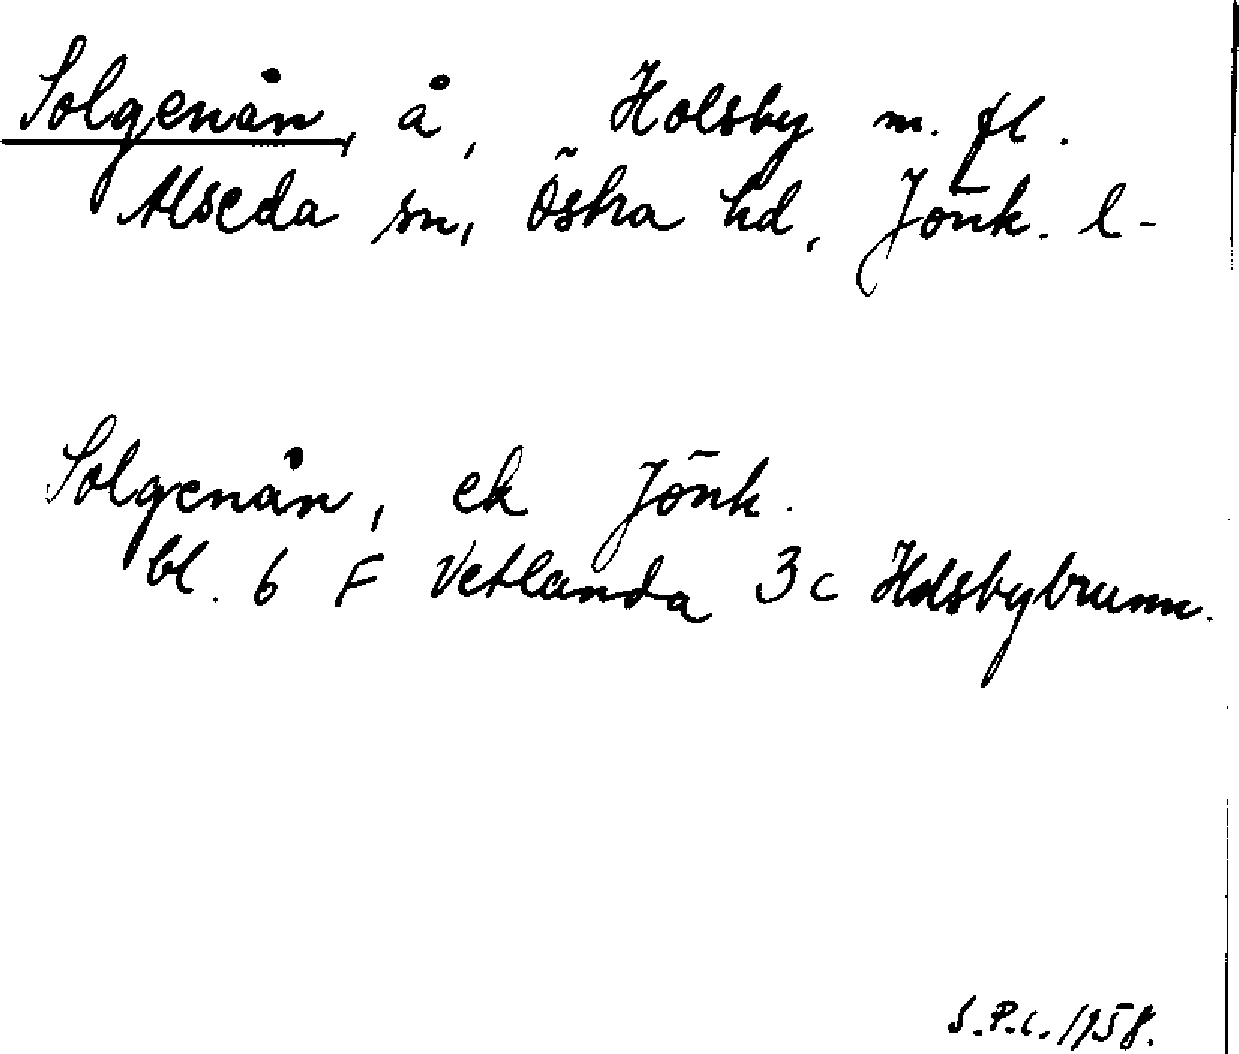 Solgenån, å, Holsby m. fl.
Alseda sn, Östra hd, Jönk. l.
Solgenån, ek Jönk.
bl. 6 F Vetlanda 3c Holsbybrunn.
S.P.C. 1958.